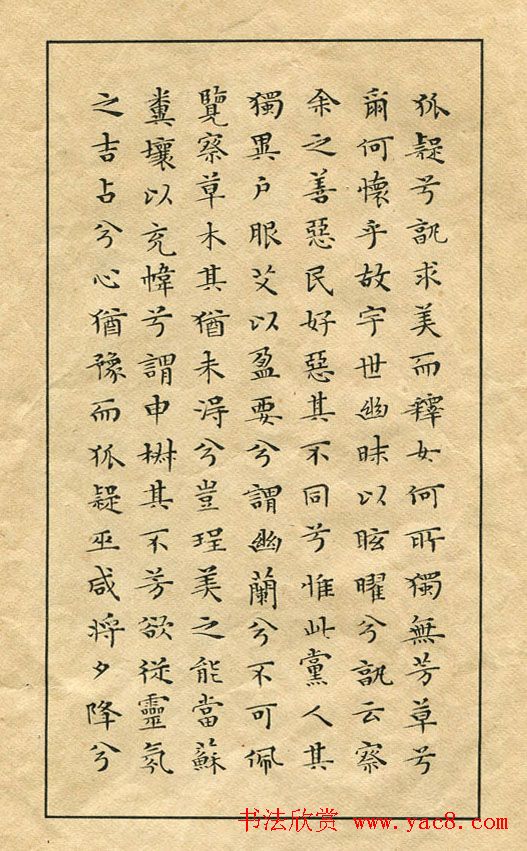 狐疑兮孰求美而釋女何所獨無芳草兮
爾何懷乎故宇世幽昧以眩曜兮孰云察
余之善惡民好惡其不同兮惟此黨人其
獨異戶服艾以盈要兮謂幽蘭兮不可佩
覽察草木其猶未得兮豈珵美之能當蘇
糞壤以充幃兮謂申椒其不芳欲從靈氛
之吉占兮心猶豫而狐疑巫咸將夕降兮
书法欣赏 www.yac8.com